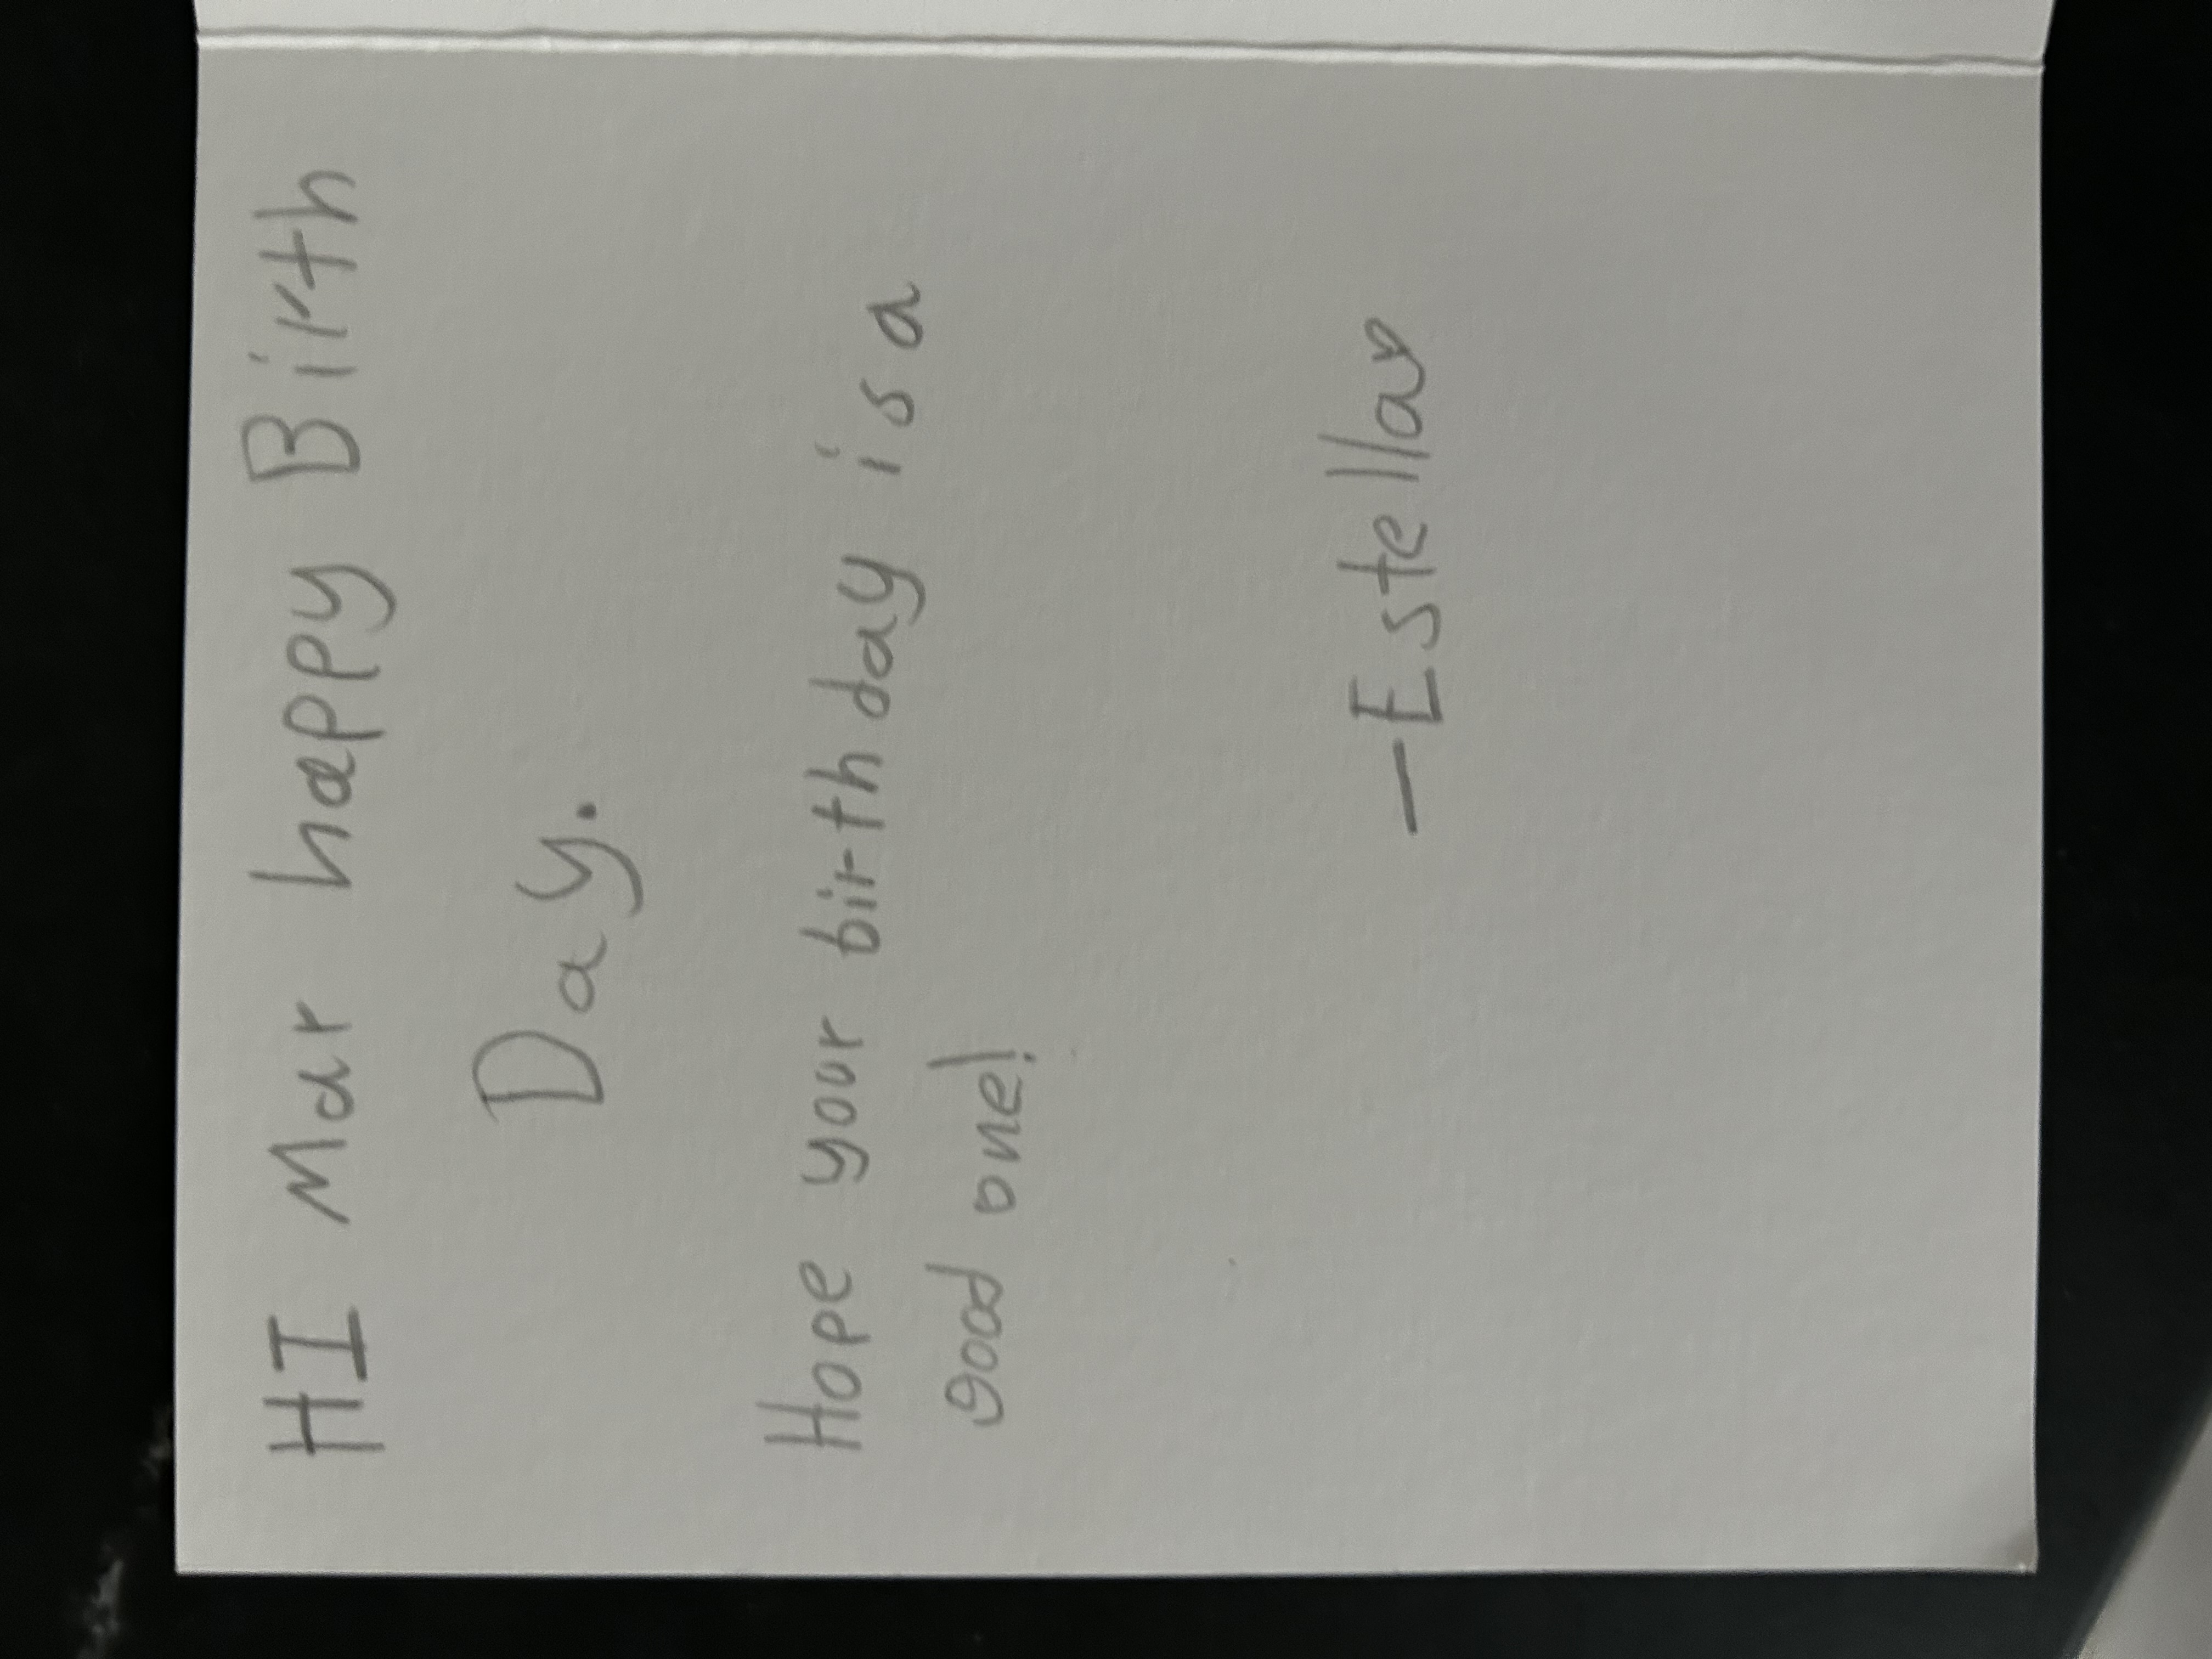 HI Mar happy Birth
Day.
Hope your birthday is a
good one!
—Estella